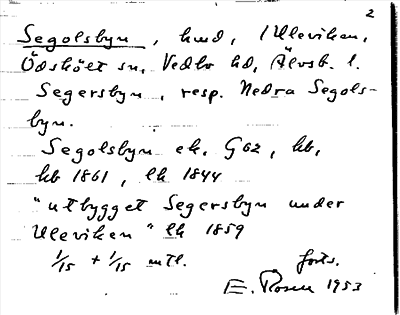 2
Segolsbyn, hmd, Uleviken,
Ödskölt sn, Vedbo hd, Älvsb. l.
Segersbyn, resp. Nedra Segols-
byn.
Segolsbyn ek. G62, hb,
hb 1861, lk 1844
"utbygget Segersbyn under
Uleviken" lk 1859
1/15 + 1/15 mtl.
forts.
E. Rosén 1953